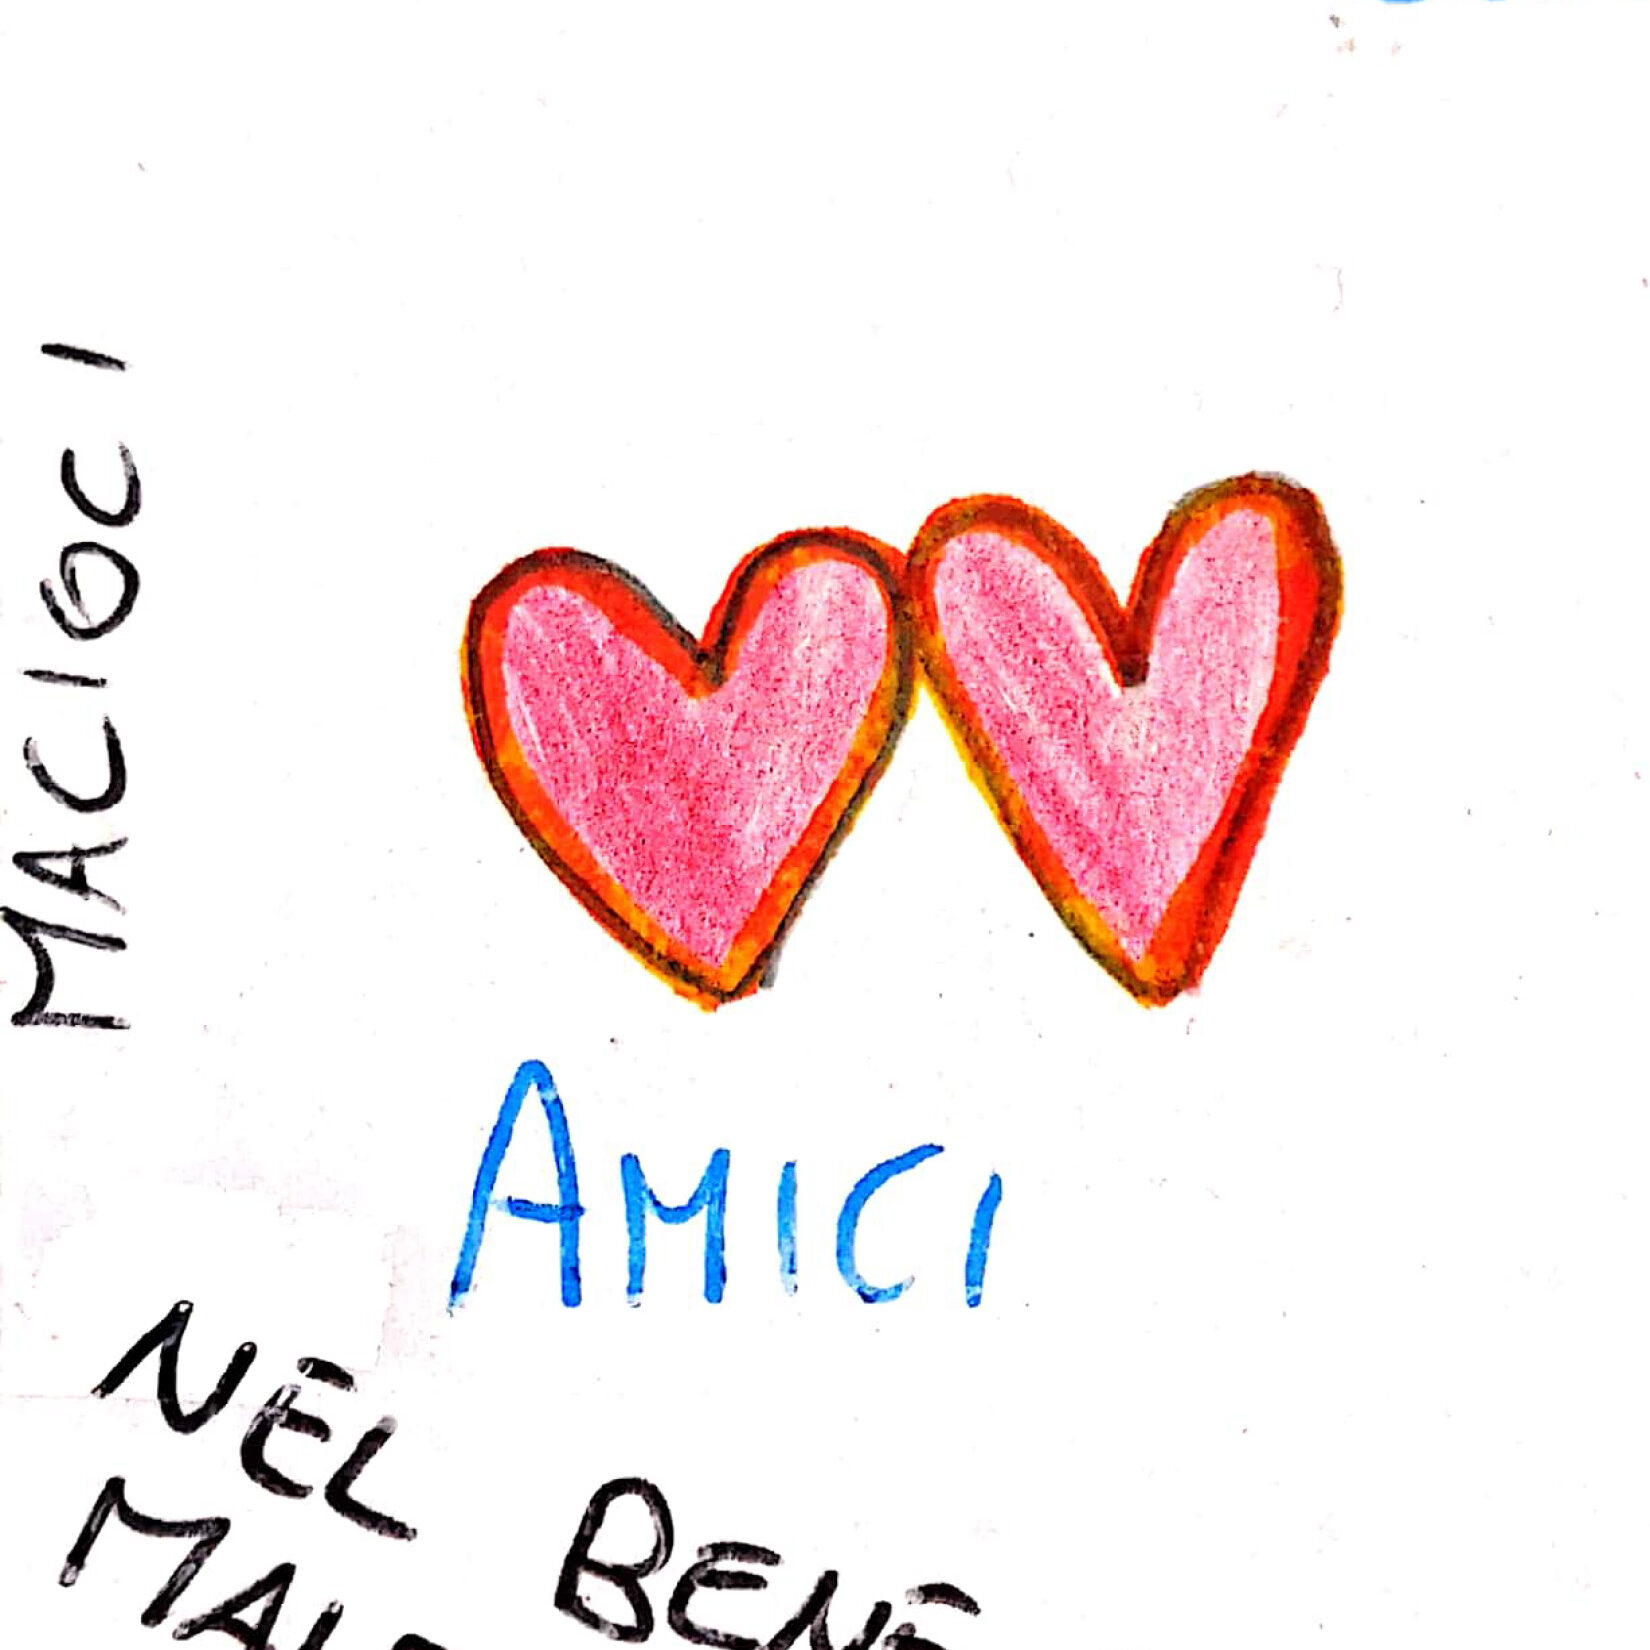 MACIOCI
AMICI
NEL BENE
MALE